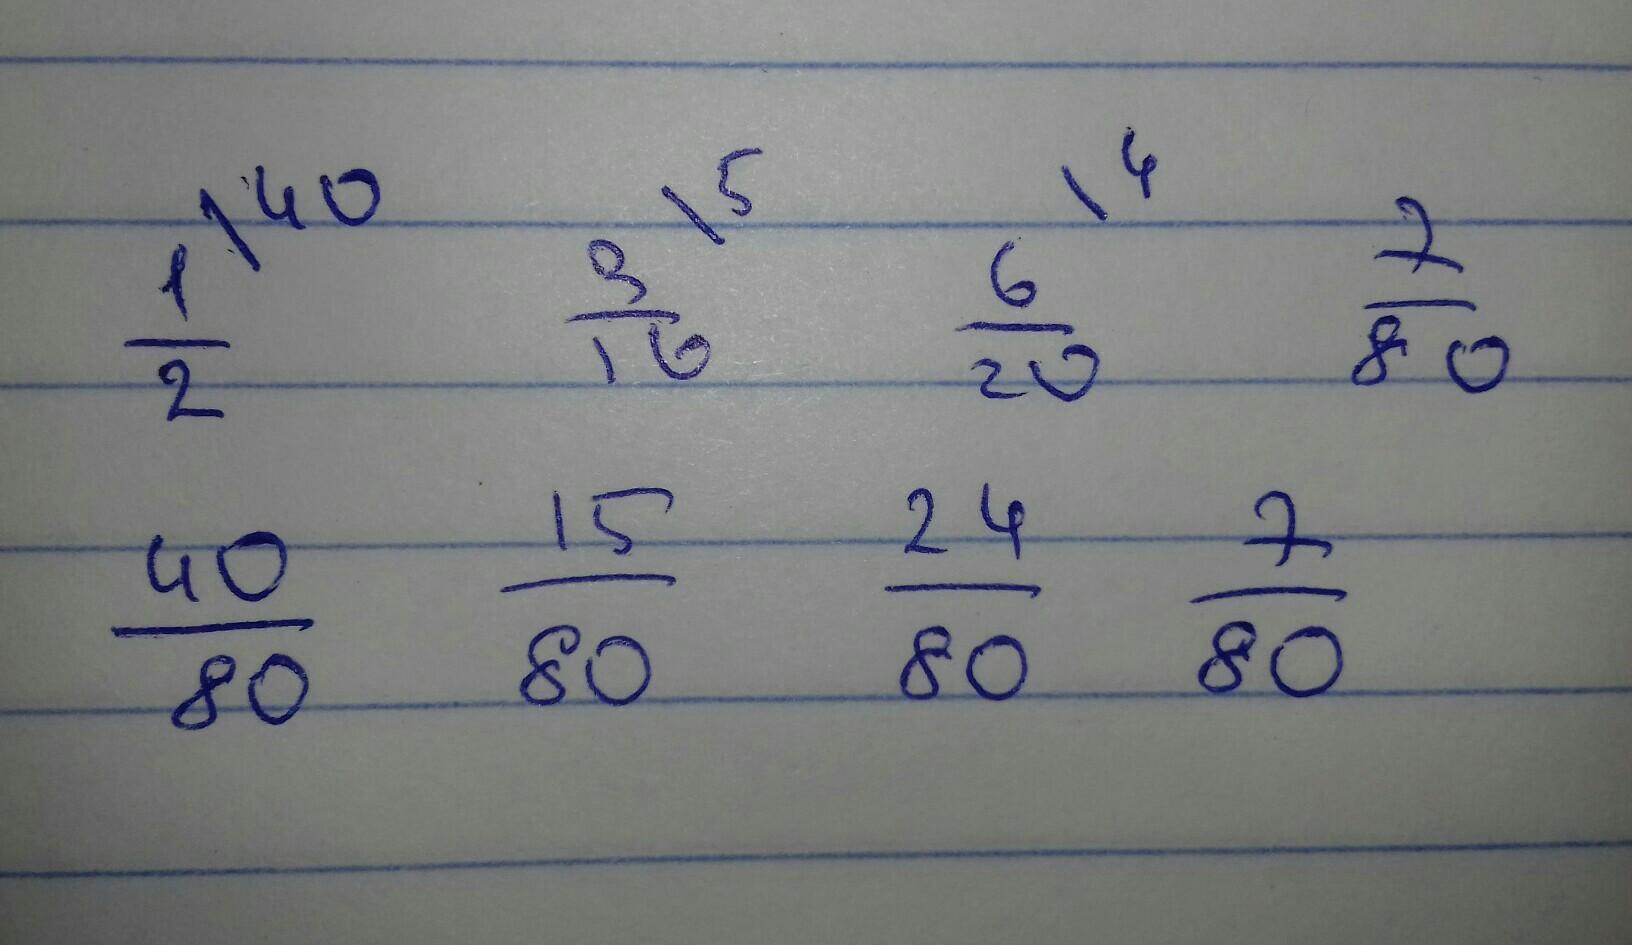 1/2 \40 3/16 \5 6/20 \4 7/80
40/80 15/80 24/80 7/80